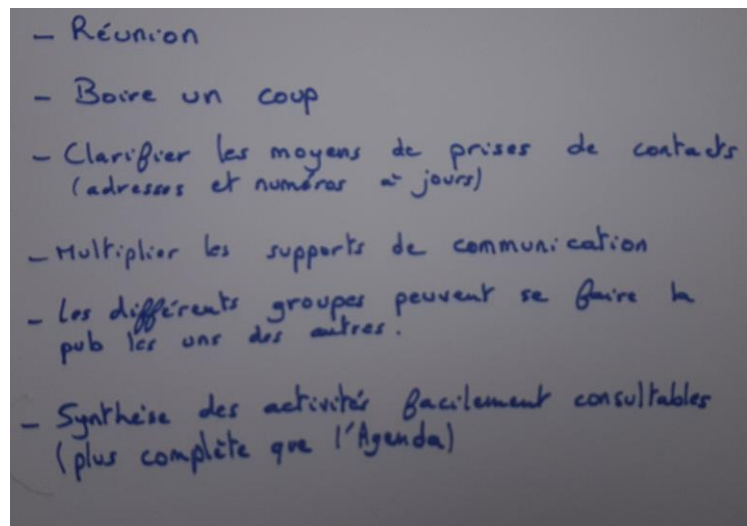 - Réunion
- Boire un coup
- Clarifier les moyens de prises de contacts
(adresses et numéros à jours)
- Multiplier les supports de communication
- Les différents groupes peuvent se faire la
pub les uns des autres.
- Synthèse des activités facilement consultables
(plus complète que l'Agenda)